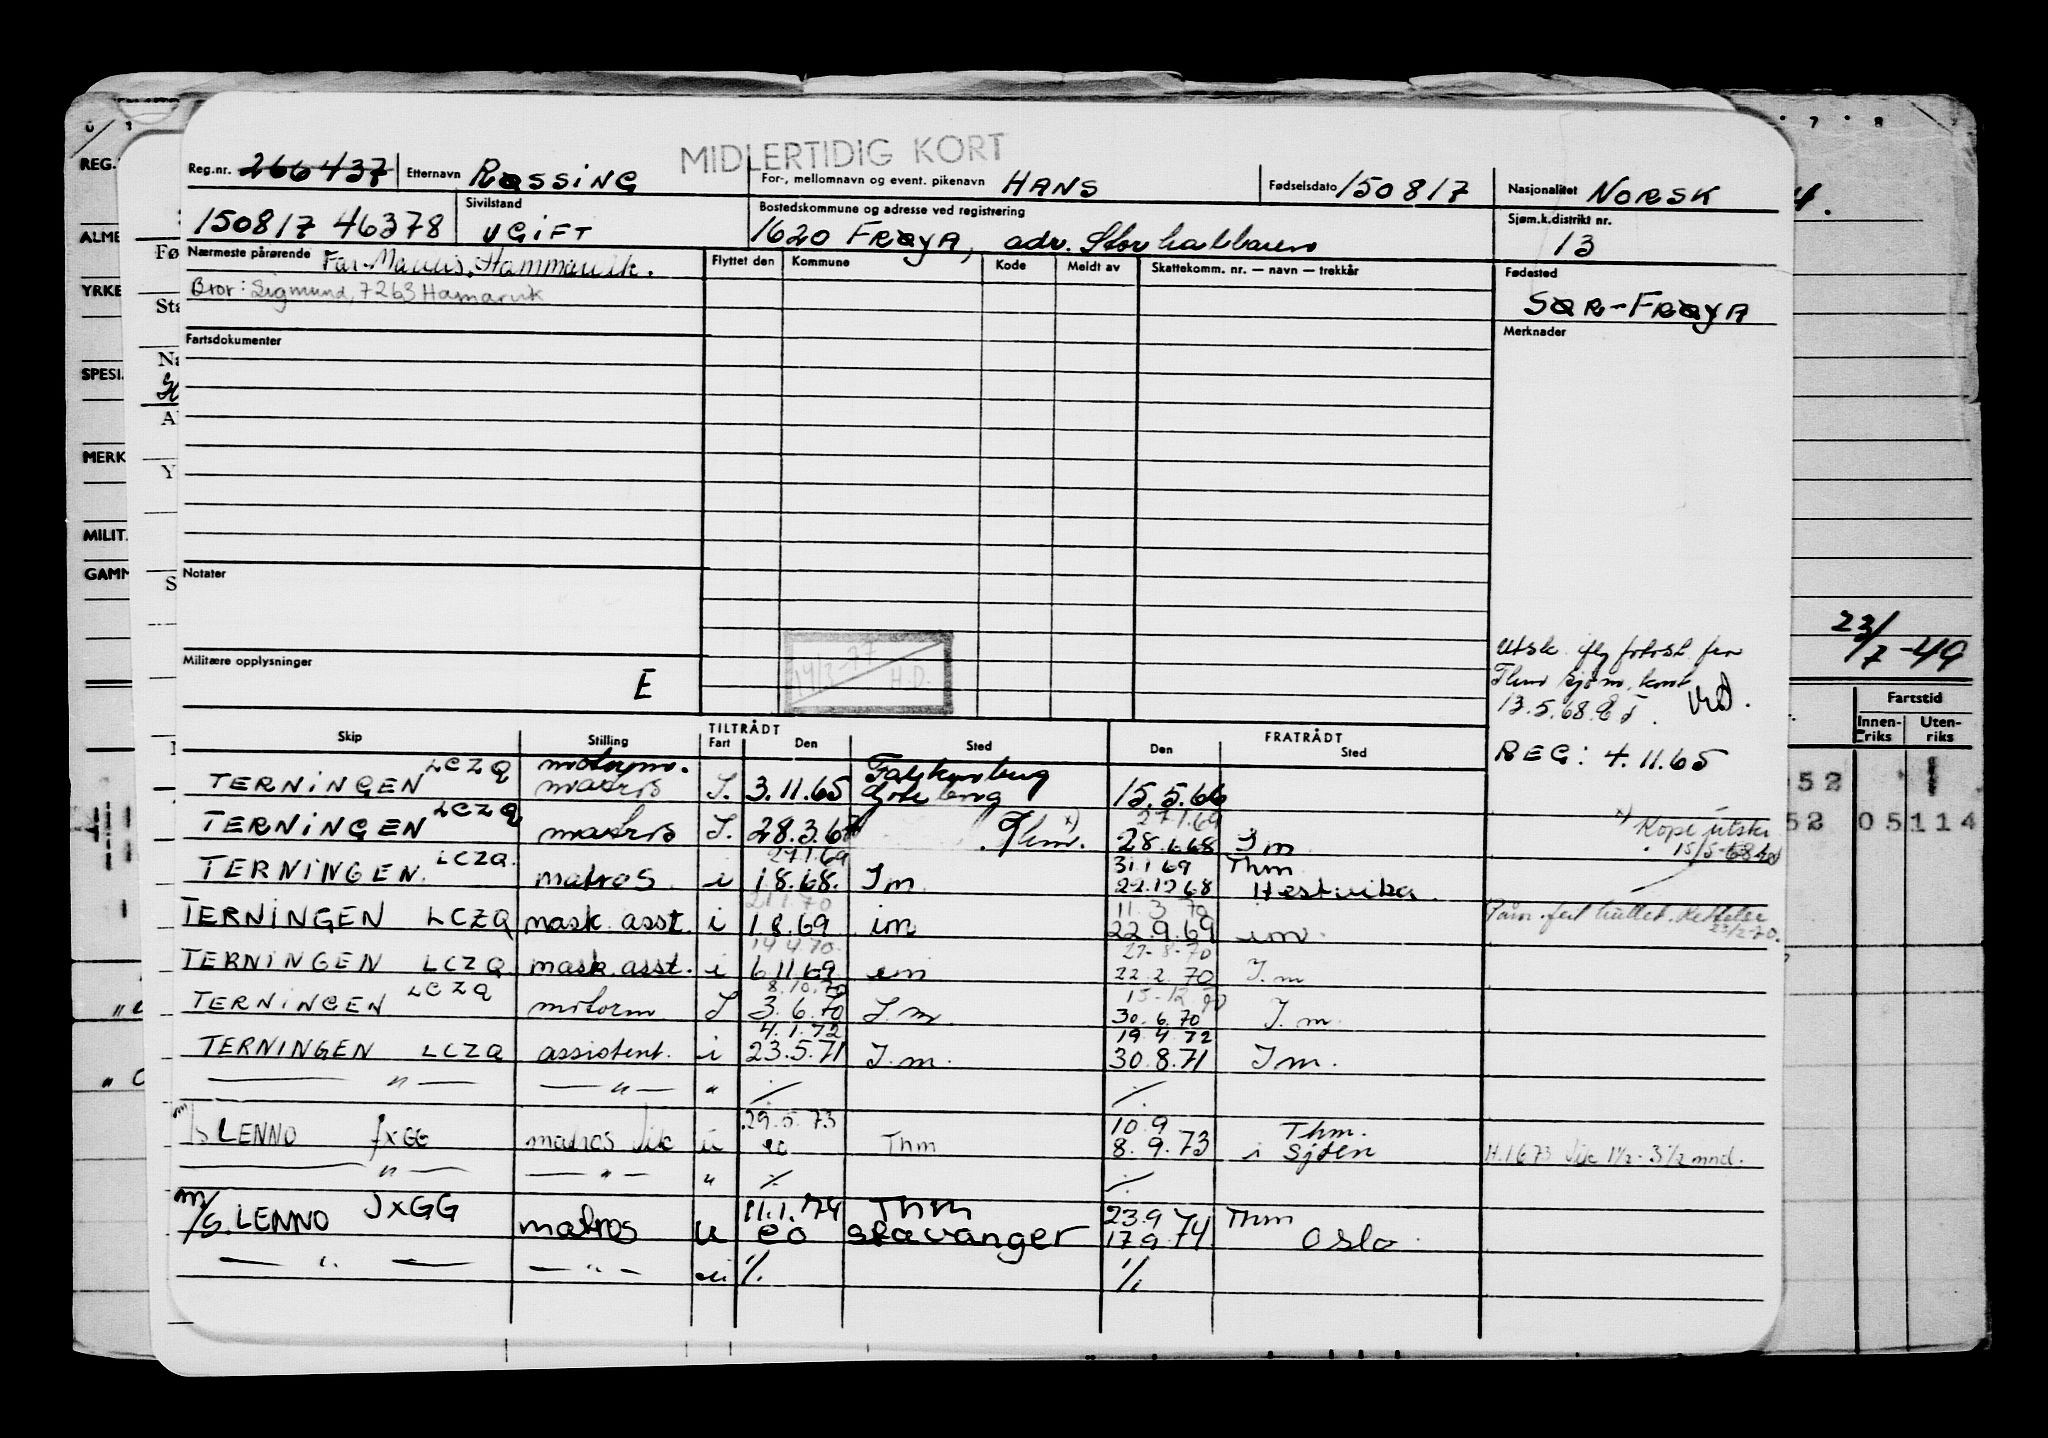 MIDLERTIDIG KORT
Reg.nr. 266437 Etternavn RØSSING For-, mellomnavn og event. pikenavn HANS Fødselsdato 150817 Nasjonalitet NORSK
150817 46378 Sivilstand UGIFT Bostedskommune og adresse ved registrering 1620 FRØYA, adr. Storhallaren Sjøm.k.distrikt nr. 13
Nærmeste pårørende Far. Hammarvik. Flyttet den Kommune Kode Meldt av Skattekomm. nr. — navn — trekkår Fødested
Bror: Sigmund, 7263 Hamarvik
SØR-FRØYA
Fartsdokumenter Merknader
Notater
23/7-49
Militære opplysninger E
14/3-77 H.D.
13.5.68
REG: 4.11.65
Skip Stilling TILTRÅDT Fart Den Sted FRATRÅDT Den Sted
TERNINGEN LCZQ motorm. matros I. 3.11.65 Falkenberg Gøteborg 15.5.66
TERNINGEN LCZQ matros I. 28.3.68 Thm. x) 27.1.69 28.6.68 Im
x) Kopi utskr. 15/5-68
TERNINGEN LCZQ. matros i 27.1.69 1.8.68. Im 31.1.69 22.12.68 Thm Hestvika.
TERNINGEN LCZQ mask.asst. i 21.1.70 1.8.69 im 11.3.70 22.9.69 im.
23/2-70.
TERNINGEN LCZQ mask.asst. i 14.4.70 6.11.69 im 27-8-70 22.2.70 I.m
TERNINGEN LCZQ motorm I 8.10.70 3.6.70 I.m. 15-12-70 30.6.70 I.m.
TERNINGEN LCZQ assistent. i 4.1.72 23.5.71 I.m. 19.4.72 30.8.71 Im.
— " — — " — " ./. ./.
m/s LENNO JXGG matros Vik u 29.5.73 eo Thm 10.9 8.9.73 Thm. i Sjøen
H.1673 Vik 1½-3½ mnd.
— " — — " — " ./. ./.
m/s. LENNO JXGG matros u 11.1.74 eo Thm Stavanger 23.9 17.9.74 Thm Oslo
— " — — " — ./. ./.
REG.
ALME
YRKE
SPESI.
MERK
MILIT.
GAMM
Fartstid
Innen-riks Uten-riks
52
52 05114